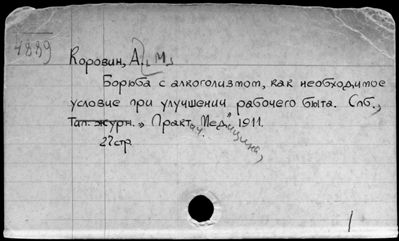 4889
Коровин, А. М.
Борьба с алкоголизмом, как необходимое
условие при улучшении рабочего быта. Спб.,
Тип. журн. „Практич. Медицина", 1911.
27 стр.
1